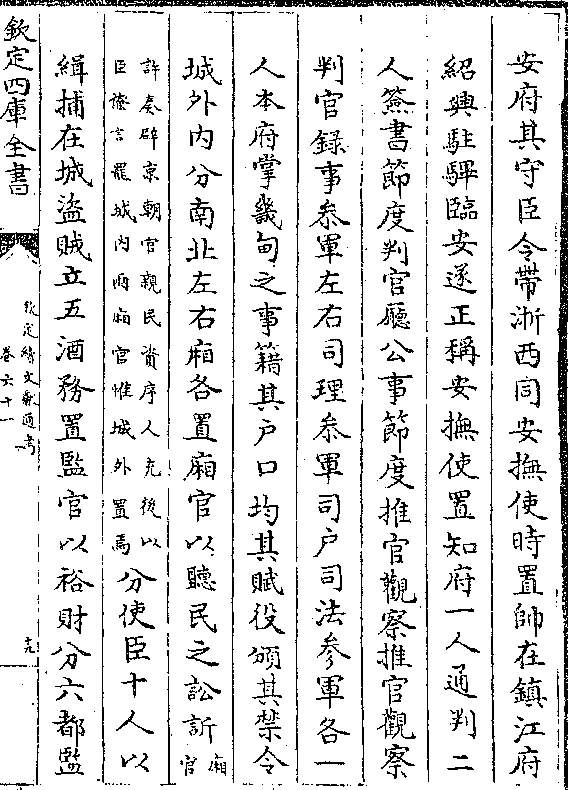 安府其守臣令帶浙西同安撫使時置帥在鎮江府
紹興駐驆臨安遂正稱安撫使置知府一人通判二
人簽書節度判官廳公事節度推官觀察推官觀察
判官錄事叅軍左右司理叅軍司户司法參軍各一
人本府掌畿甸之事籍其户口均其賦役頒其禁令
城外内分南北左右廂各置廂官以聽民之訟訢廂官
許奏辟京朝官親民資序人充後以
臣僚言罷城内兩廂官惟城外置焉
分使臣十人以
緝捕在城盜賊立五酒務置監官以裕財分六都監
欽定四庫全書
欽定續文獻通考
卷六十一
十九